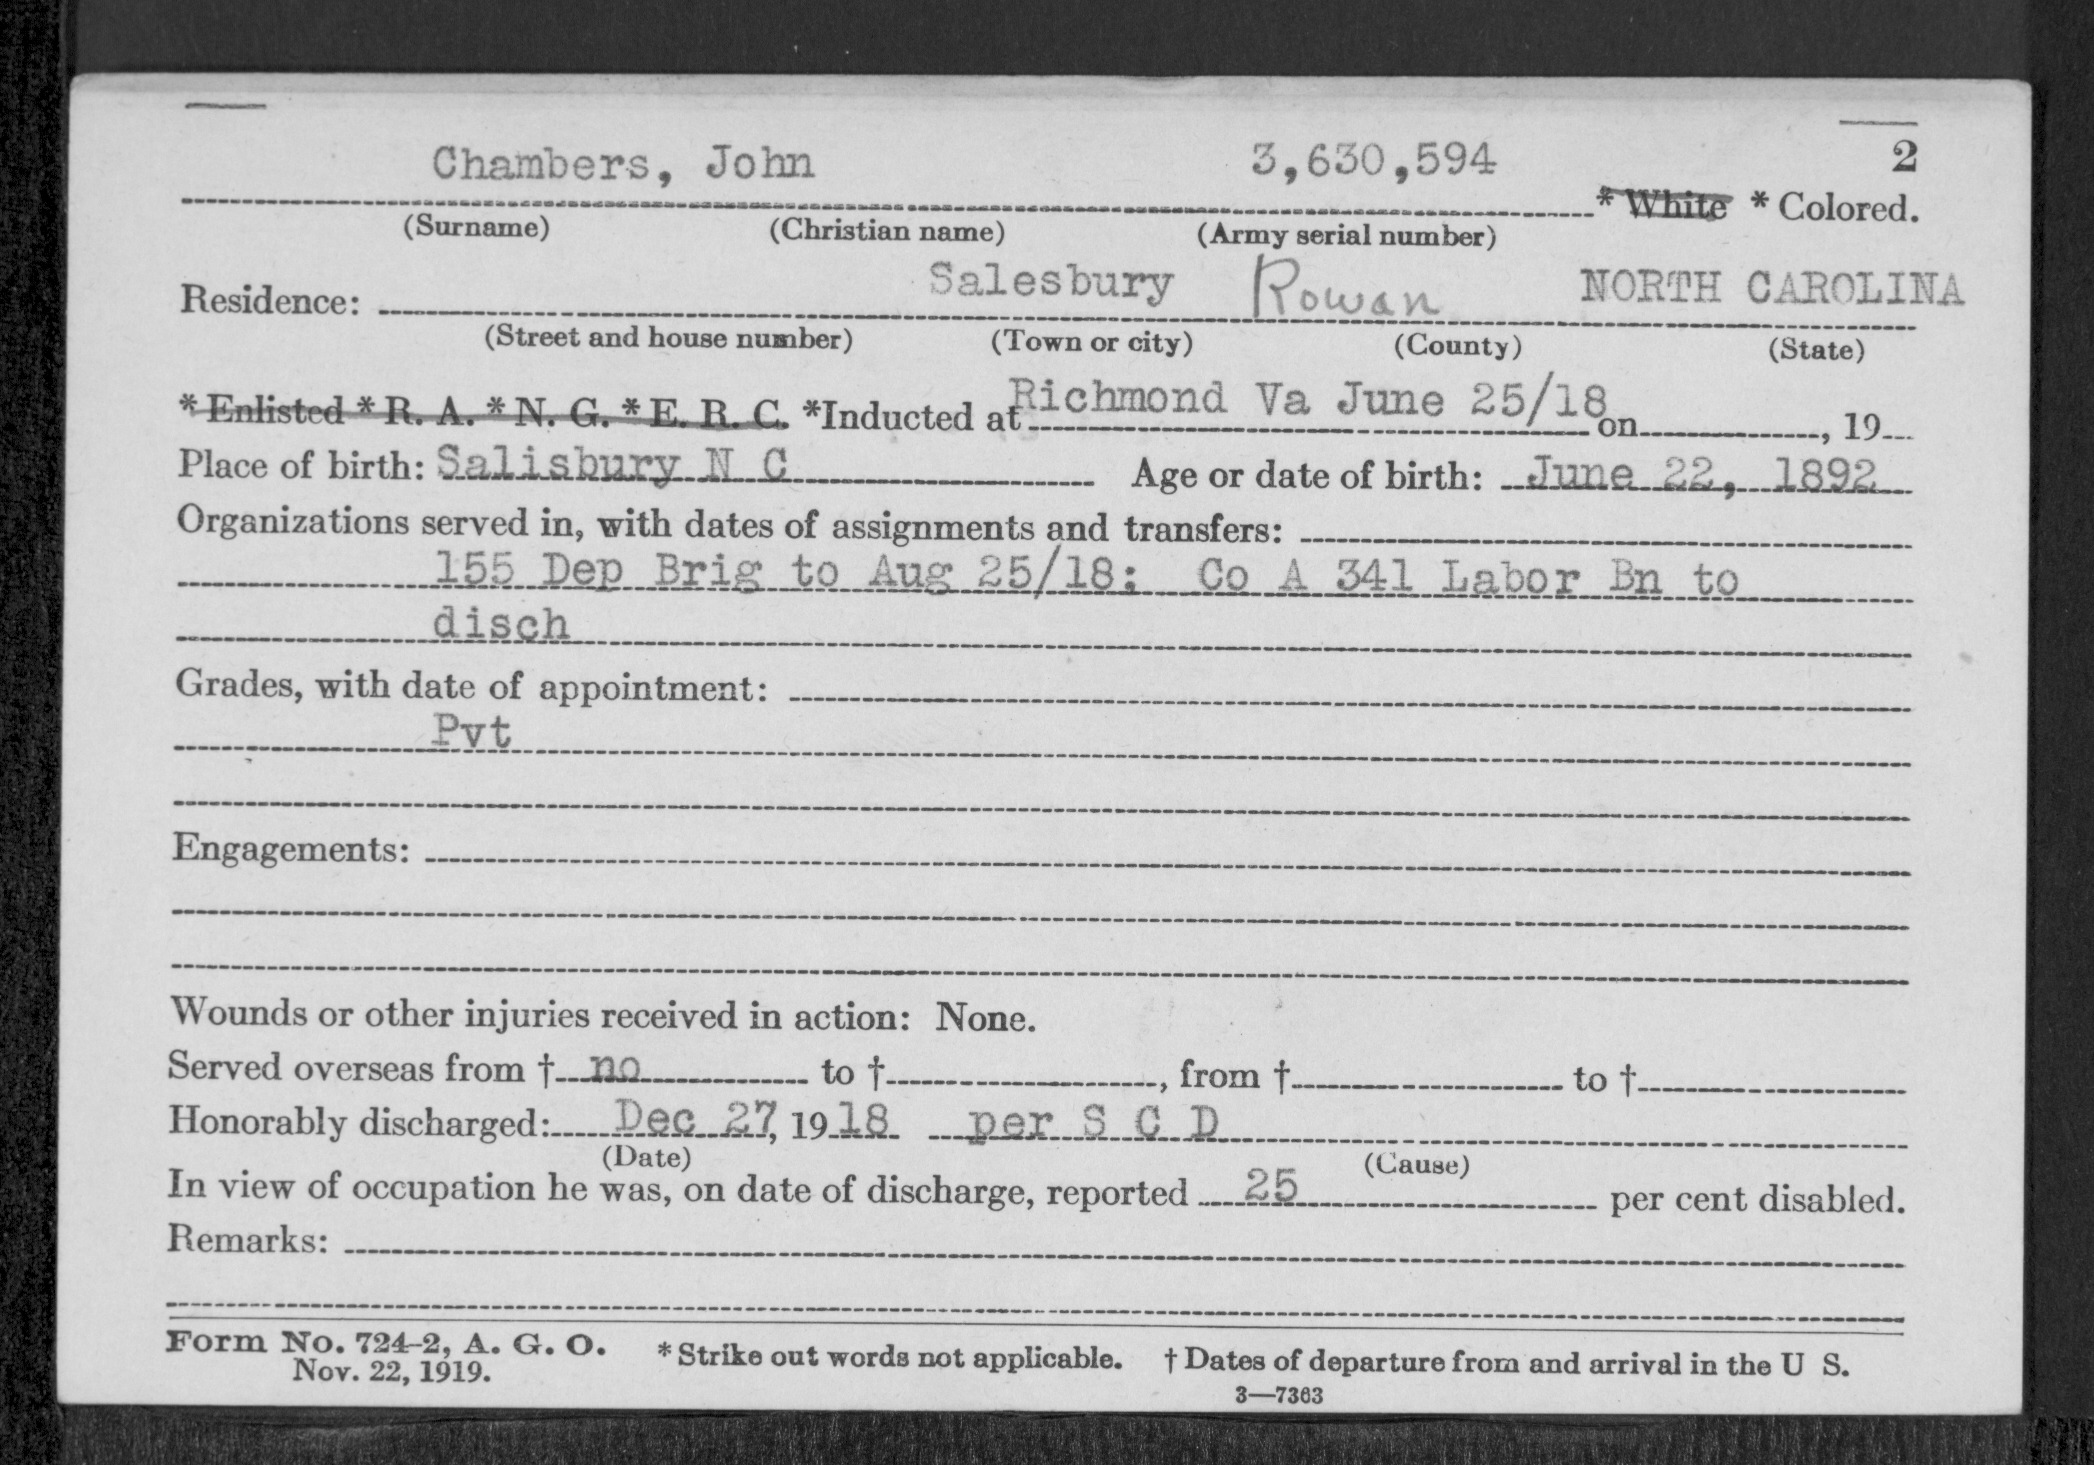 Chambers, John 3,630,594 2
* White * Colored.
(Surname) (Christian name) (Army serial number)
Residence: Salesbury Rowan NORTH CAROLINA
(Street and house number) (Town or city) (County) (State)
* Enlisted * R. A. * N. G. * E. R. C. *Inducted at Richmond Va June 25/18 on , 19
Place of birth: Salisbury N C Age or date of birth: June 22, 1892
Organizations served in, with dates of assignments and transfers:
155 Dep Brig to Aug 25/18; Co A 341 Labor Bn to
disch
Grades, with date of appointment:
Pvt
Engagements:
Wounds or other injuries received in action: None.
Served overseas from † no to † , from † to †
Honorably discharged: Dec 27, 1918 per S C D
(Date) (Cause)
In view of occupation he was, on date of discharge, reported 25 per cent disabled.
Remarks:
Form No. 724-2, A. G. O. * Strike out words not applicable. † Dates of departure from and arrival in the U S.
Nov. 22, 1919.
3—7363